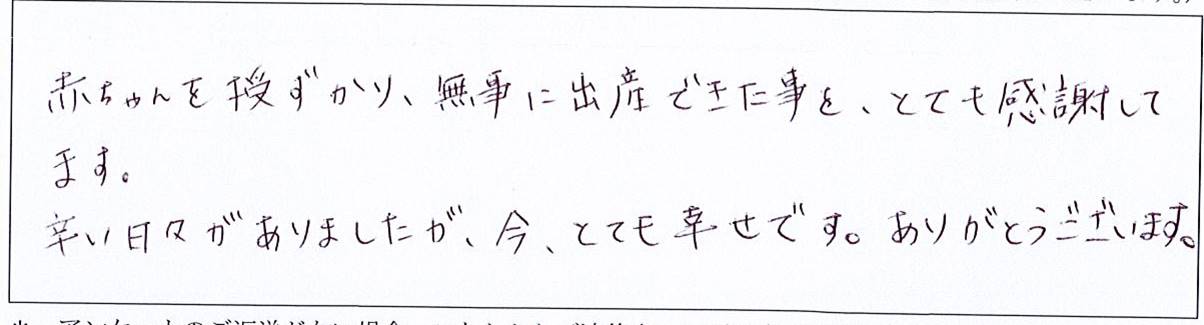 赤ちゃんを授ずかり、無事に出産できた事を、とても感謝して
ます。
辛い日々がありましたが、今、とても幸せです。ありがとうございます。